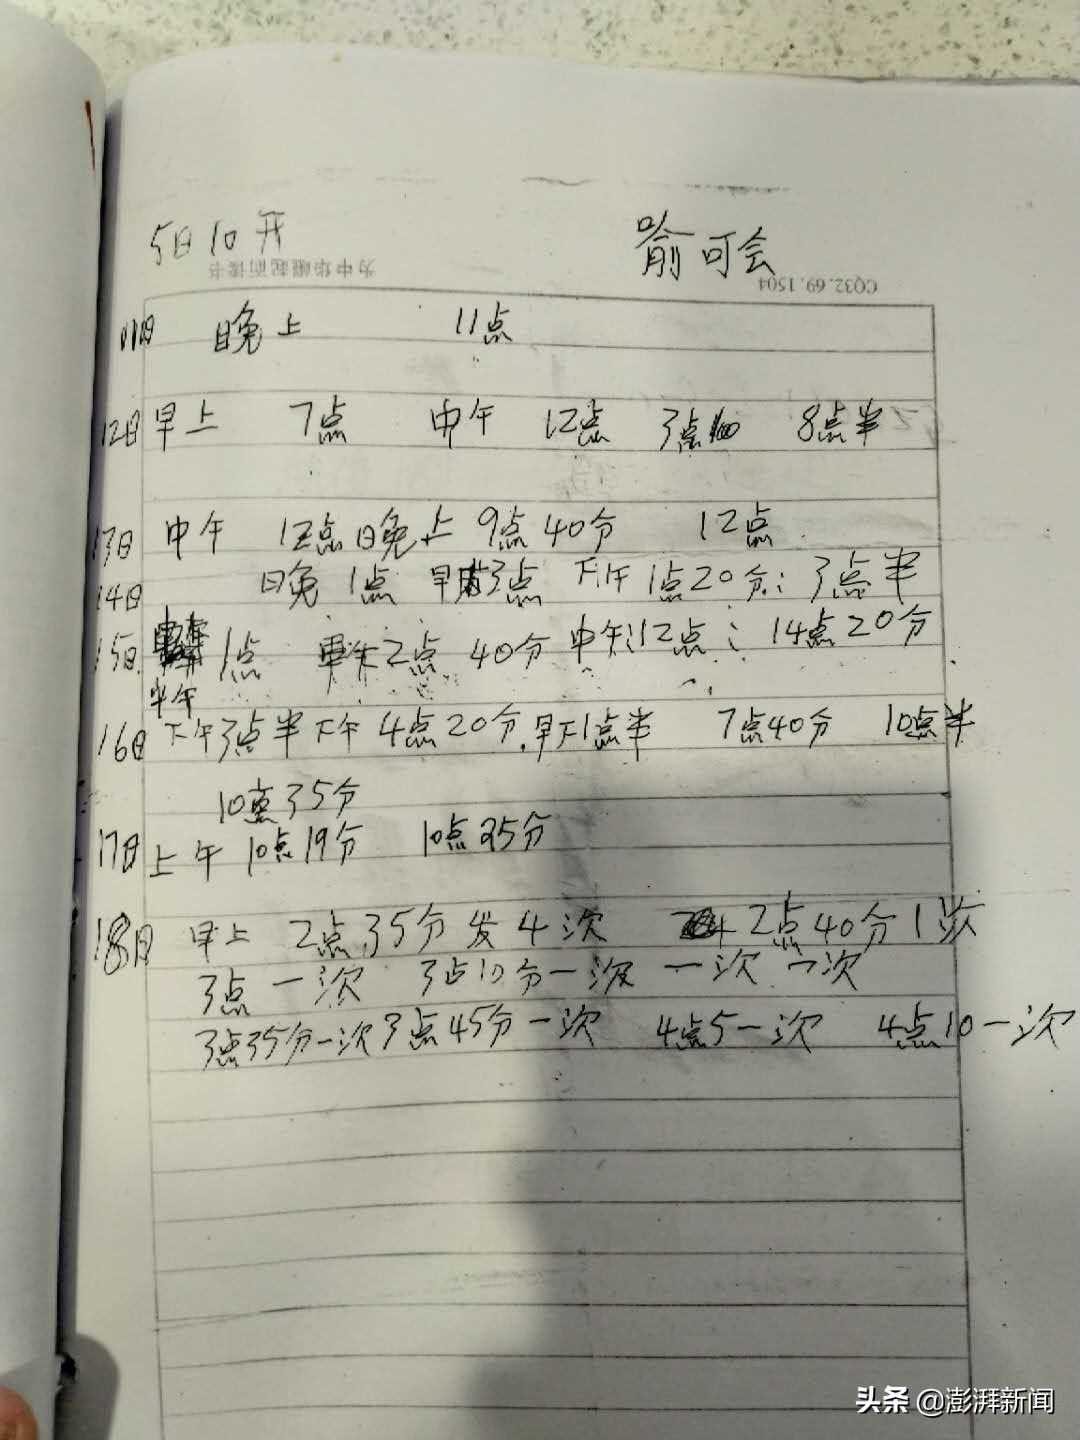 5日10开
喻可会
为中华崛起而读书
CQ32.69.1504
11日 晚上 11点
12日 早上 7点 中午 12点 3点 8点半
13日 中午 12点 晚上 9点40分 12点
14日 晚 1点 3点 下午 1点20分; 3点半
15日 1点 2点 40分 中午:12点; 14点20分
半午
16日 下午3点半 下午 4点20分. 早下1点半 7点40分 10点半
10点35分
17日 上午 10点19分 10点35分
18日 早上 2点35分发4次 2点40分1次
3点一次 3点10分一次 一次 一次
3点35分一次 3点45分一次 4点5一次 4点10一次
头条 @澎湃新闻